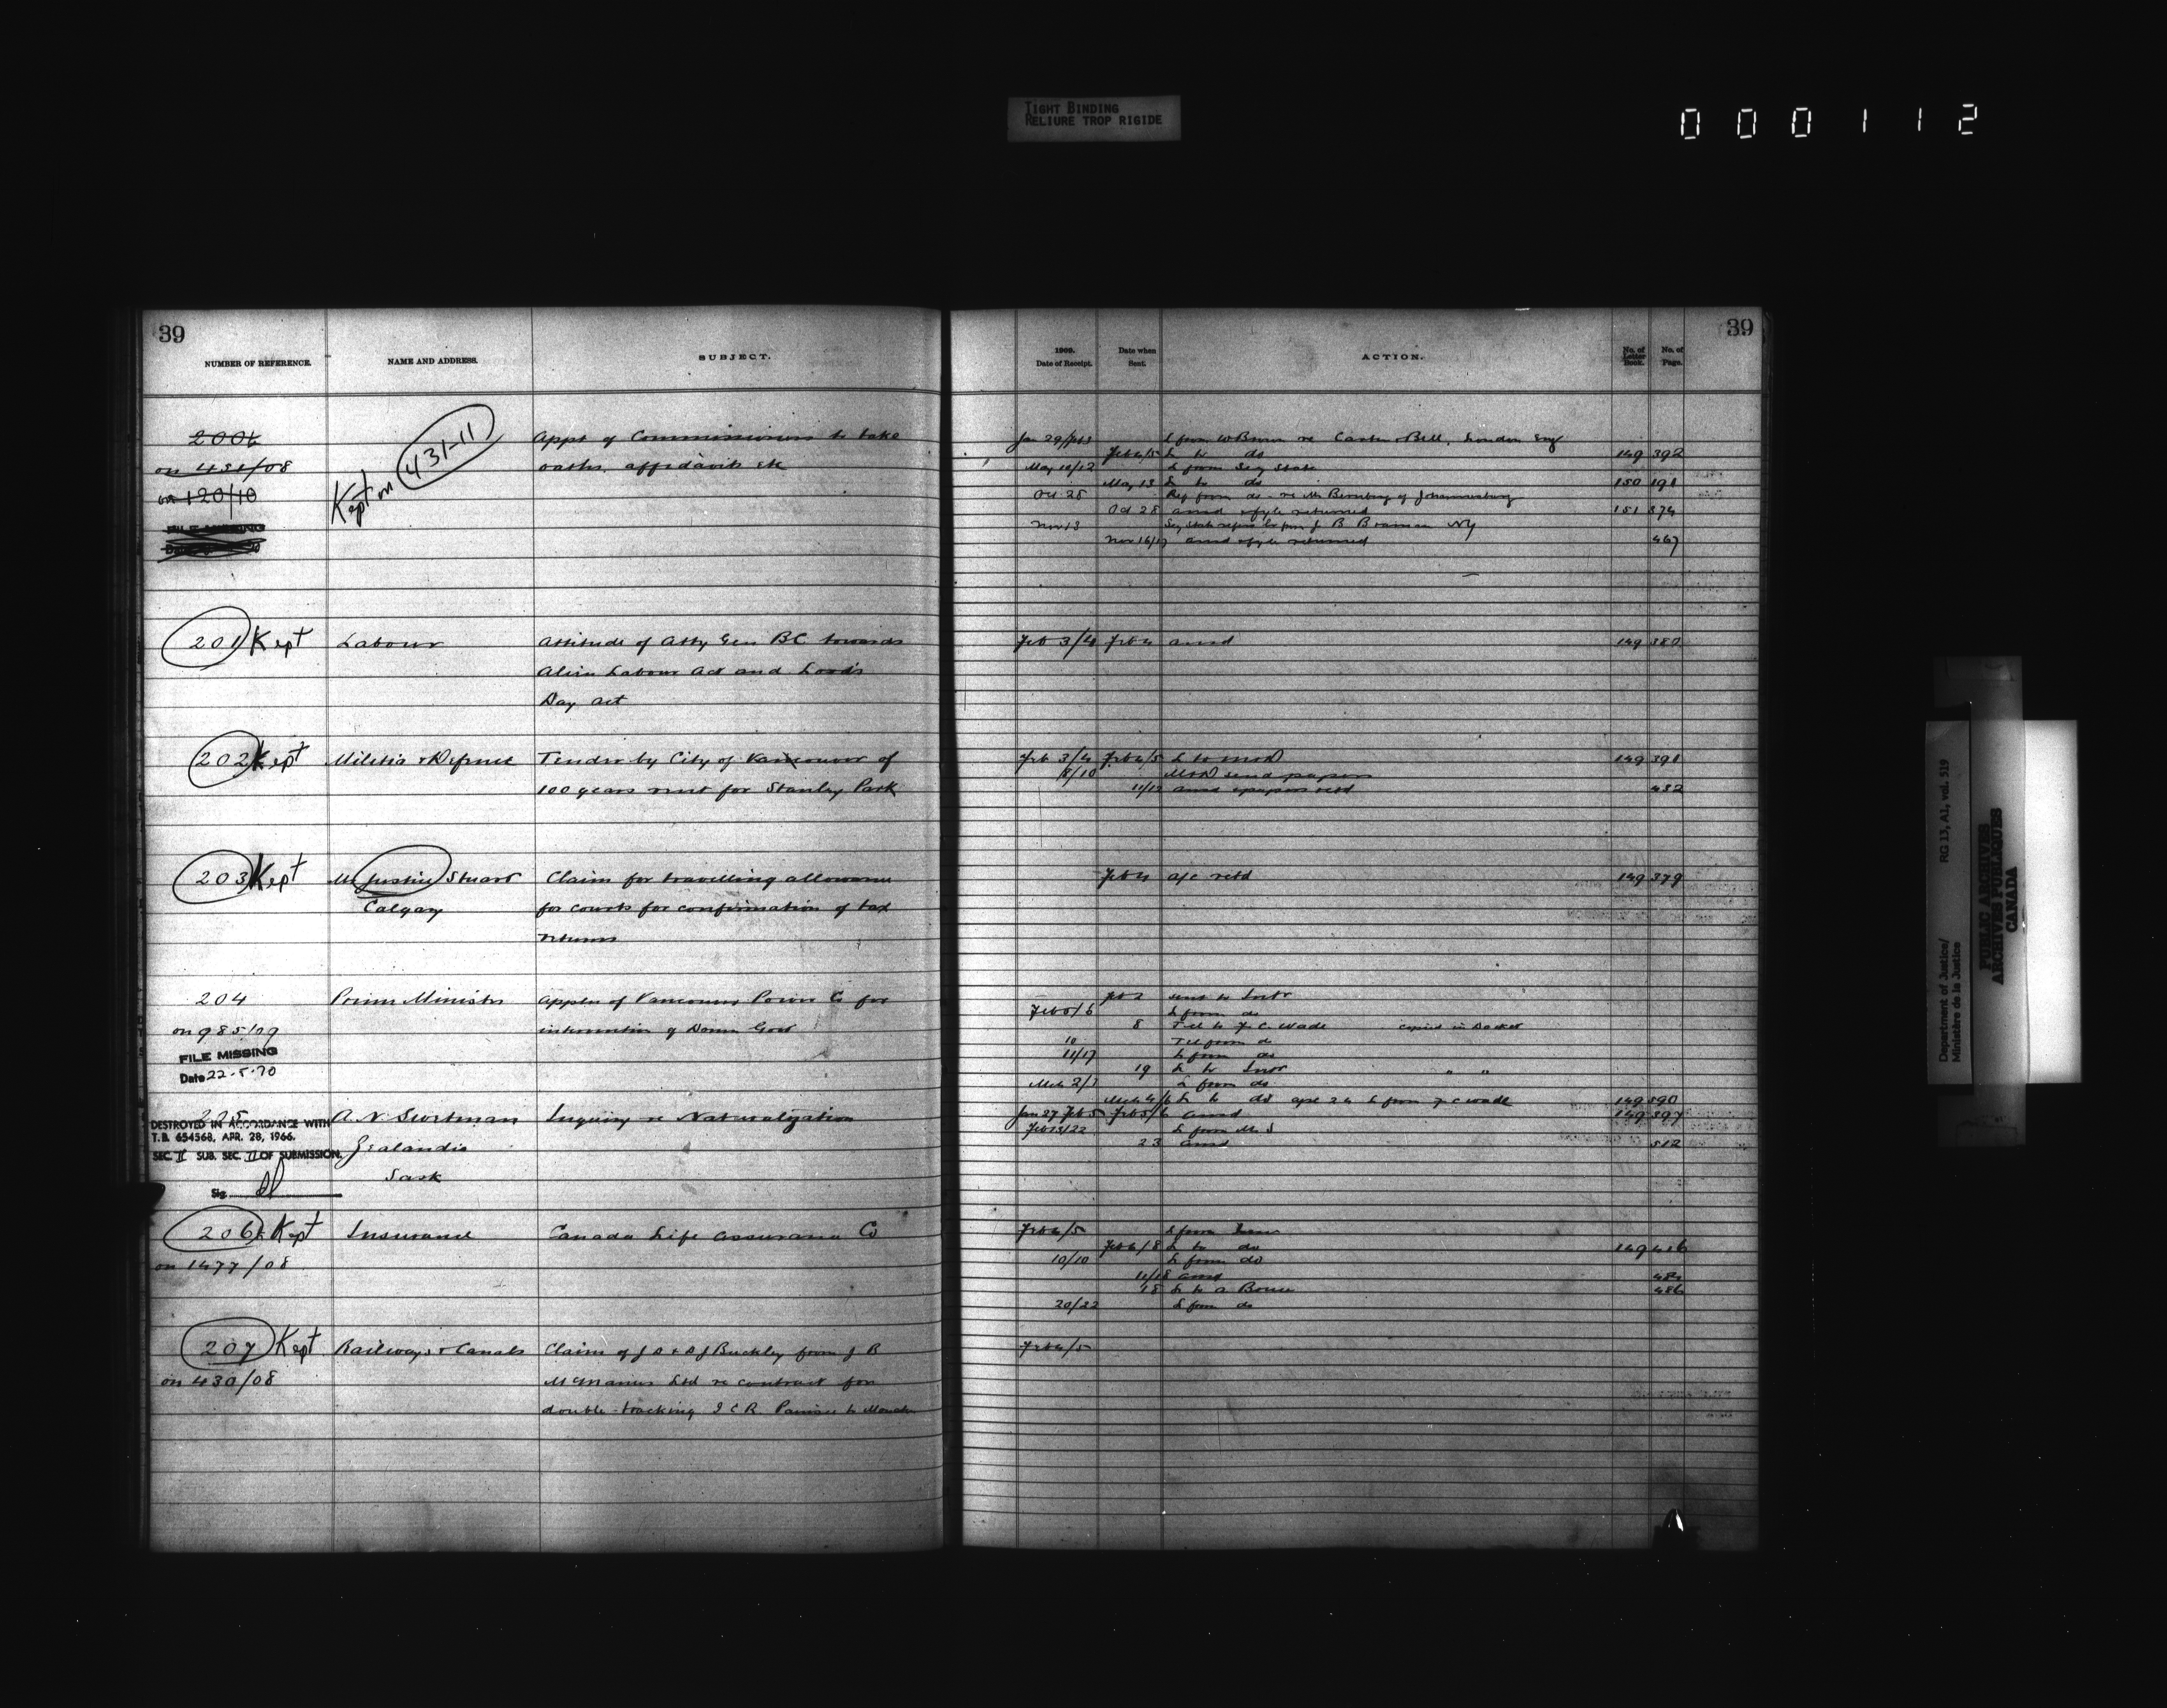 TIGHT BINDING
RELIURE TROP RIGIDE
000112
39
NUMBER OF REFERENCE.
NAME AND ADDRESS.
SUBJECT.
200½
on 431/08
on 120/10
FILE MISSING
Kept on 431-11
Appt of Commissioners to take
oaths, affidavits etc
201 Kept
Labour
Attitude of Atty Gen BC towards
Alien Labour Act and Lord's
Day Act
202 Kept
Militia & Defence
Tender by City of Vancouver of
100 years rent for Stanley Park
203 Kept
Mr Justice Stuart
Calgary
Claim for travelling allowance
for courts for confirmation of tax
returns
204
on 985/09
FILE MISSING
Date 22.5.70
Prime Minister
Appln of Vancouver Power Co for
intervention of Domn Govt
205
DESTROYED IN ACCORDANCE WITH
T.B. 654568, APR. 28, 1966.
SEC. II SUB. SEC. II OF SUBMISSION.
Sig.
A. N.
Zealandia
Sask
Inquiry re Naturalization
206 Kept
on 1477/08
Insurance
Canada Life Assurance Co
207 Kept
on 430/08
Railways & Canals
Claim of J A & A J Buckley from J B
McManus Ltd re contract for
double-tracking I C R. to
39
1909.
Date of Receipt.
Date when
Sent.
ACTION.
No. of
Letter
Book.
No. of
Page.
Jan 29/Feb 3 L from W Brown re Carter & Bell, London Eng
Feb 4/5 L to do 149 392
May 10/12 L from Secy State
May 13 L to do 150 191
Oct 28 Ref from do - re Mr of Johannesburg
Oct 28 ansd & fyle returned 151 374
Nov 13 Secy State refers lr from J B Braman NY
Nov 16/17 ansd & fyle returned 467
Feb 3/4 Feb 4 ansd 149 380
Feb 3/4 Feb 4/5 L to M&D 149 391
8/10 M&D send papers
11/12 ansd & papers retd 432
Feb 4 a/c retd 149 379
Feb 2 sent to Intr
Feb 5/6 L from do
8 Tel to F. C. Wade copied in Docket
10 Tel from do
11/17 L from do
19 L to Intr " "
Mch 2/3 L from do
Mch 4/6 L to do Apl 24 L from F C Wade 149 590
Jan 27 Feb 5 Feb 5/6 ansd 149 397
Feb 13/22 L from Mr S
23 ansd 512
Feb 4/5 L from Insce
Feb 6/8 L to do 149 416
10/10 L from do
11/18 ansd
18 L to A 486
20/22 L from do
Feb 4/5
Department of Justice/
Ministère de la Justice
RG 13, A1, vol. 519
PUBLIC ARCHIVES
ARCHIVES PUBLIQUES
CANADA